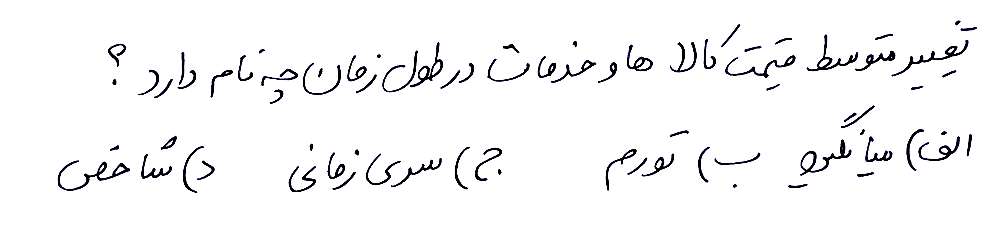 تغییر متوسط قیمت کالا ها و خدمات در طول زمان چه نام دارد ؟
الف) میانگین ب) تورم ج) سری زمانی د) شاخص